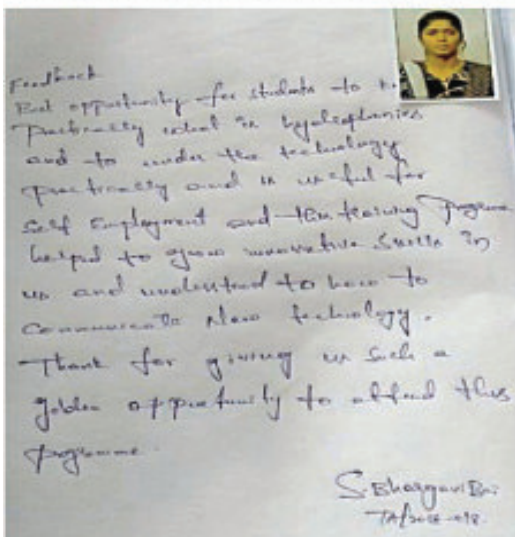 Feedback
Best opportunity for students to
Practically what is hydrophonics
and to under the technology
practically and is useful for
Self Employment and this training Programe
helped to grow innovative Skills in
us and understand to how to
Communicate New technology.
Thank for giving us such a
golden opportunity to attend this
programme.
S. Bhargavi Bai